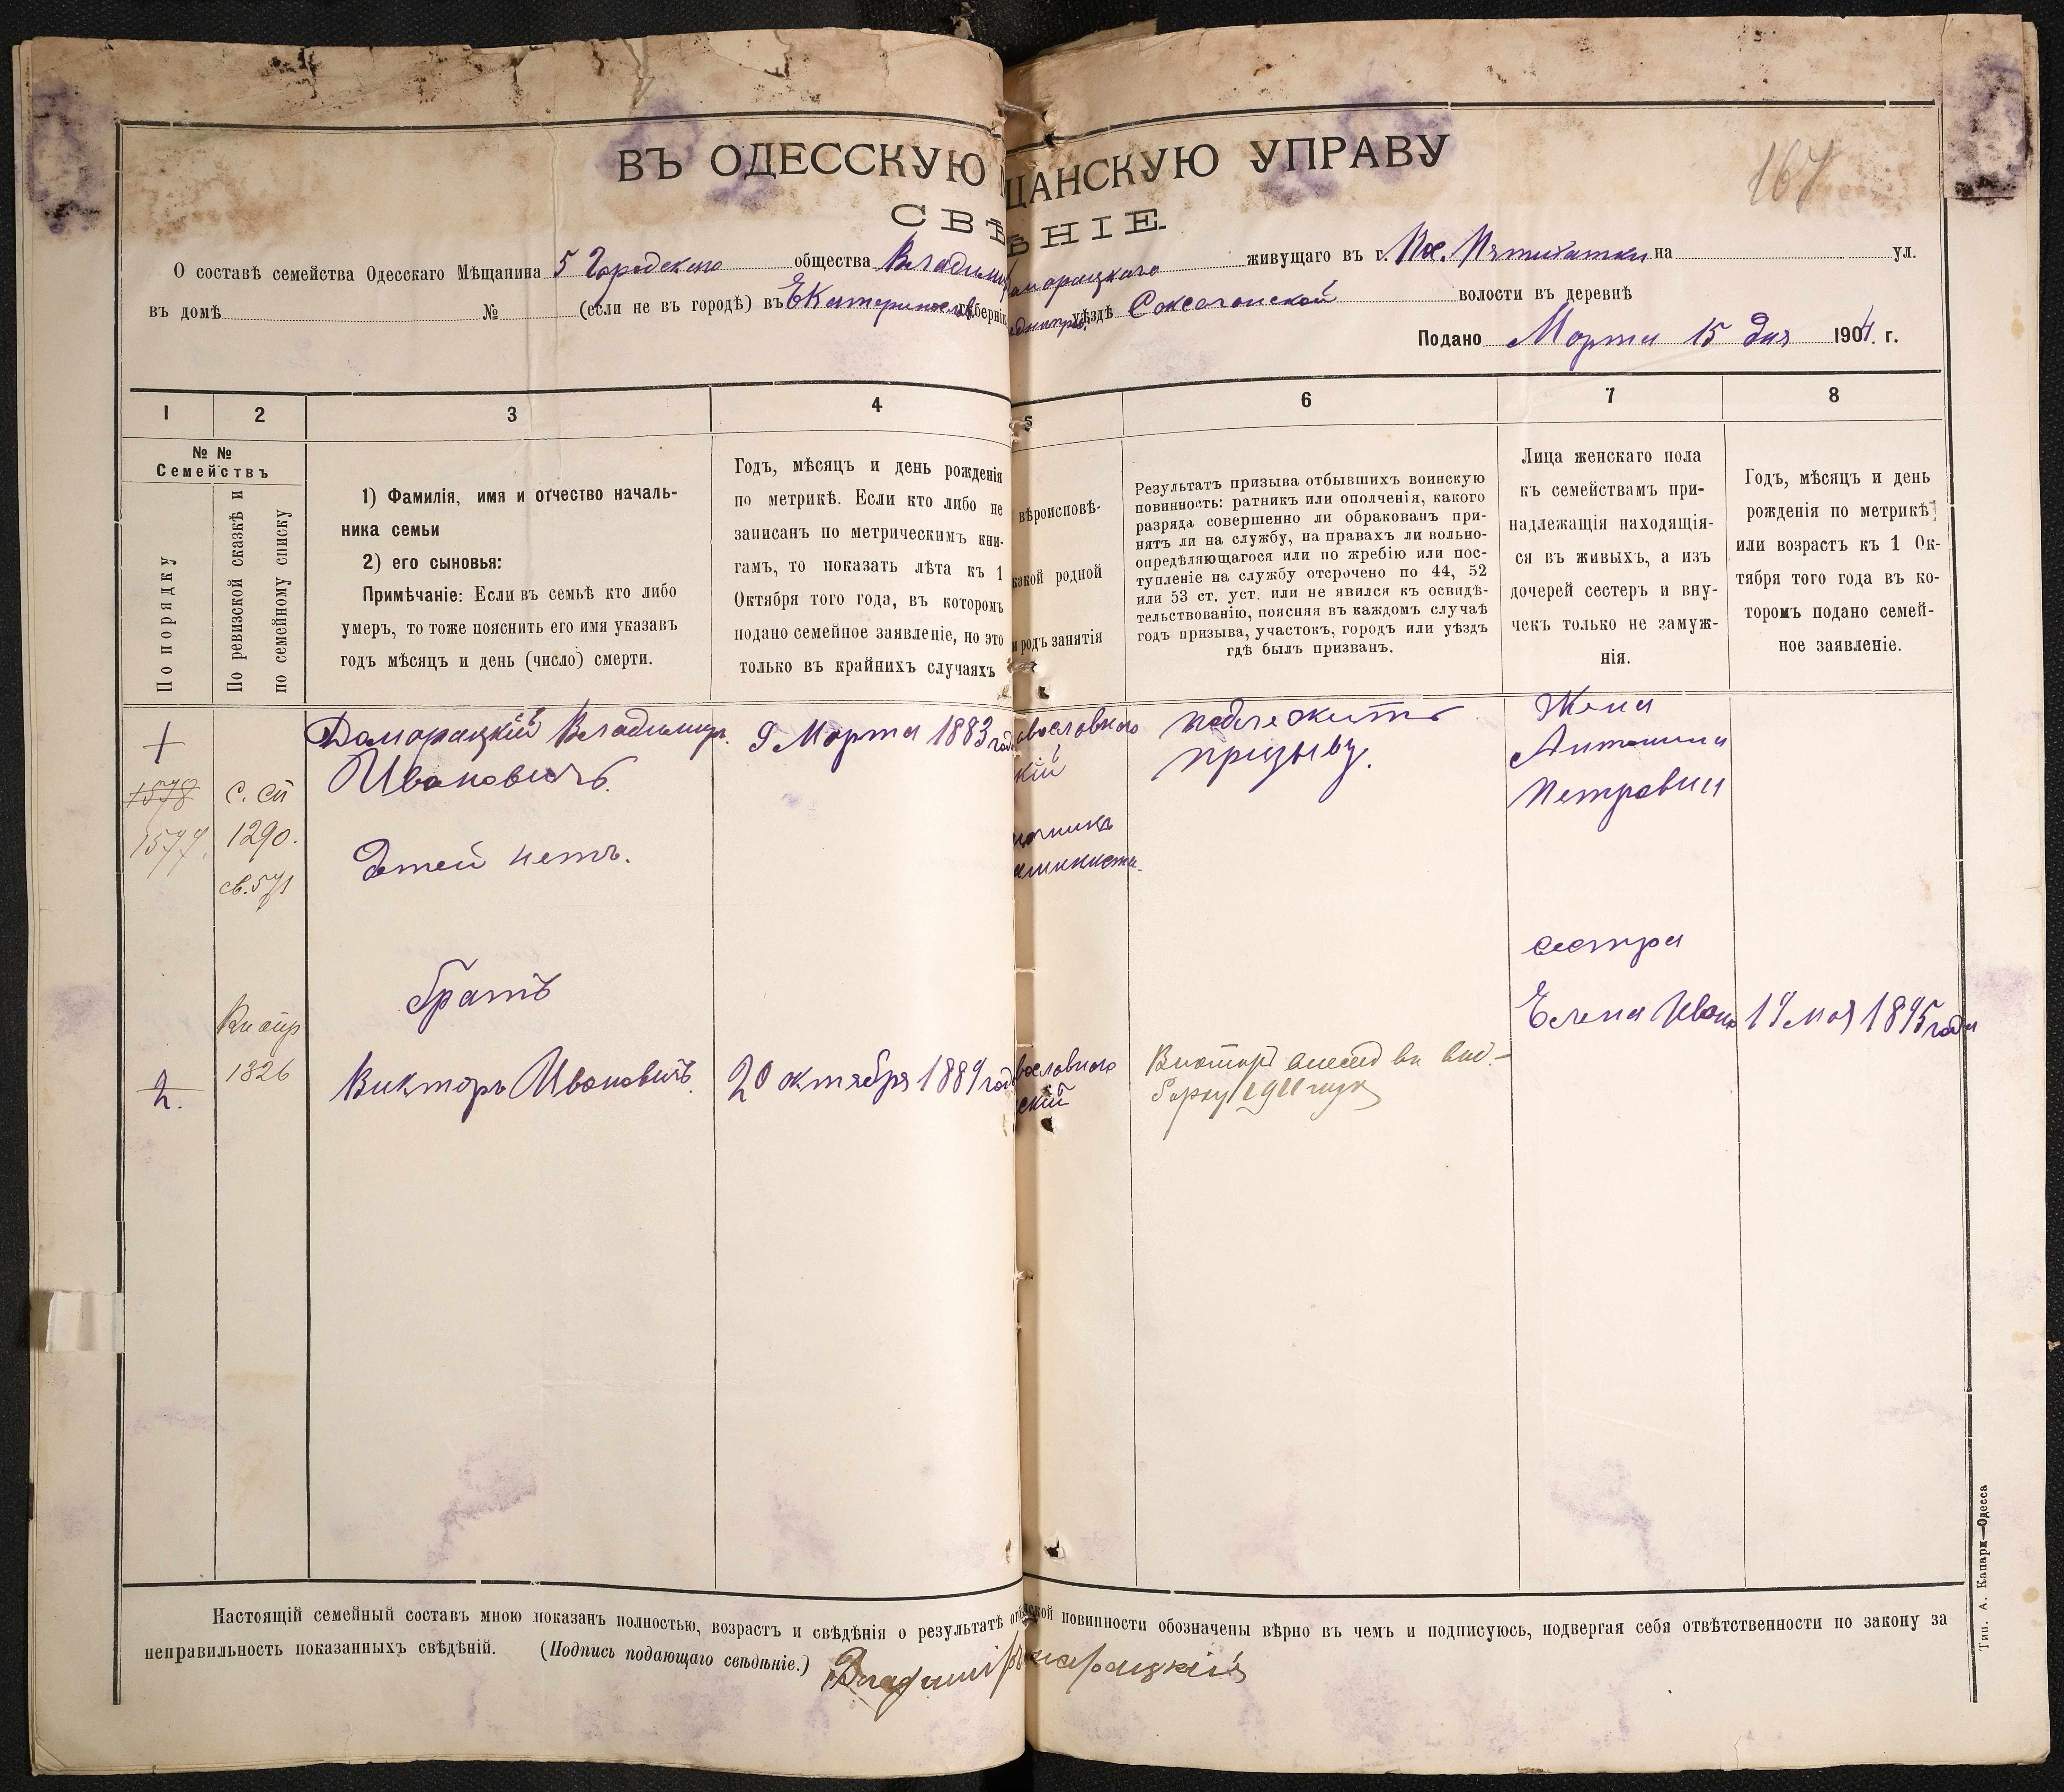 ВЪ ОДЕССКУЮ ЩАНСКУЮ УПРАВУ
167
СВѢ ѢНІЕ.
О составѣ семейства Одесскаго Мѣщанина 5 Городского общества Владимир морацкаго живущаго въ г. Пос. Пятихатки на ул.
въ домѣ № (если не въ городѣ) въ Екатериносл. губерніи уѣздѣ Саксаганской волости въ деревнѣ
Подано Марта 15 дня 1904 г.
1 2 3 4 5 6 7 8
№ №
Семействъ
По порядку
По ревизской сказкѣ и
по семейному списку
1) Фамилія, имя и отчество началь-
ника семьи
2) его сыновья:
Примѣчаніе: Если въ семьѣ кто либо
умеръ, то тоже пояснить его имя указавъ
годъ мѣсяцъ и день (число) смерти.
Годъ, мѣсяцъ и день рожденія
по метрикѣ. Если кто либо не
записанъ по метрическимъ кни-
гамъ, то показать лѣта къ 1
Октября того года, въ которомъ
подано семейное заявленіе, но это
только въ крайнихъ случаяхъ
вѣроисповѣ-
какой родной
и родъ занятія
Результатъ призыва отбывшихъ воинскую
повинность: ратникъ или ополченія, какого
разряда совершенно ли обракованъ при-
нятъ ли на службу, на правахъ ли вольно-
опредѣляющагося или по жребію или пос-
тупленіе на службу отсрочено по 44, 52
или 53 ст. уст. или не явился къ освидѣ-
тельствованію, поясняя въ каждомъ случаѣ
годъ призыва, участокъ, городъ или уѣздъ
гдѣ былъ призванъ.
Лица женскаго пола
къ семействамъ при-
надлежащія находящія-
ся въ живыхъ, а изъ
дочерей сестеръ и вну-
чекъ только не замуж-
нія.
Годъ, мѣсяцъ и день
рожденія по метрикѣ
или возрастъ къ 1 Ок-
тября того года въ ко-
торомъ подано семей-
ное заявленіе.
1
1578
1577.
с. сп
1290.
св. 571
Доморацкій Владимир.
Ивановичъ.
9 Марта 1883 год
вославнаго
кій
подлежитъ
призыву.
Жена
Антонина
Петровна
Детей нетъ.
братъ
сестра
Елена Ивано 19 мая 1895 года
1326
2.
Викторъ Ивановичъ.
20 октября 1889 год
вославнаго
скій
Викторъ внесенъ въ вы-
борку 1911 года
Настоящій семейный составъ мною показанъ полностью, возрастъ и свѣдѣнія о результатѣ отб ской повинности обозначены вѣрно въ чемъ и подписуюсь, подвергая себя отвѣтственности по закону за
неправильность показанныхъ свѣдѣній. (Подпись подающаго свѣдѣніе.) Владимір морацкій
Тип. А. Капари—Одесса